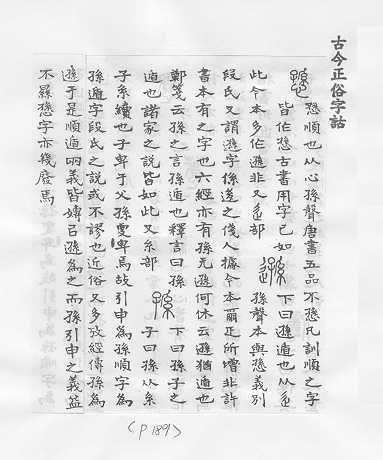 古今正俗字詁
愻 愻順也从心孫聲唐書五品不愻凡訓順之字
皆作愻古書用字已如 遜 下曰遜遁也从辵
此今本多作遜非又辵部 孫聲本與愻義別
段氏又謂遜字係後之俴人據今本爾正所增非許
書本有之字也六經亦有孫无遜何休云遜猶遁也
鄭箋云孫之言孫遁也釋言曰孫 孫 下曰孫子之
遁也諸家之說皆如此又系部 子曰孫从系
子系續也子卑于父孫更卑焉故引申為孫順字為
孫遁字段氏之說或不謬也近俗又多改經傳孫為
遜于是順遁兩義皆㠯遜為之而孫引申之義益
不㬎愻字亦幾廢焉
(P189)